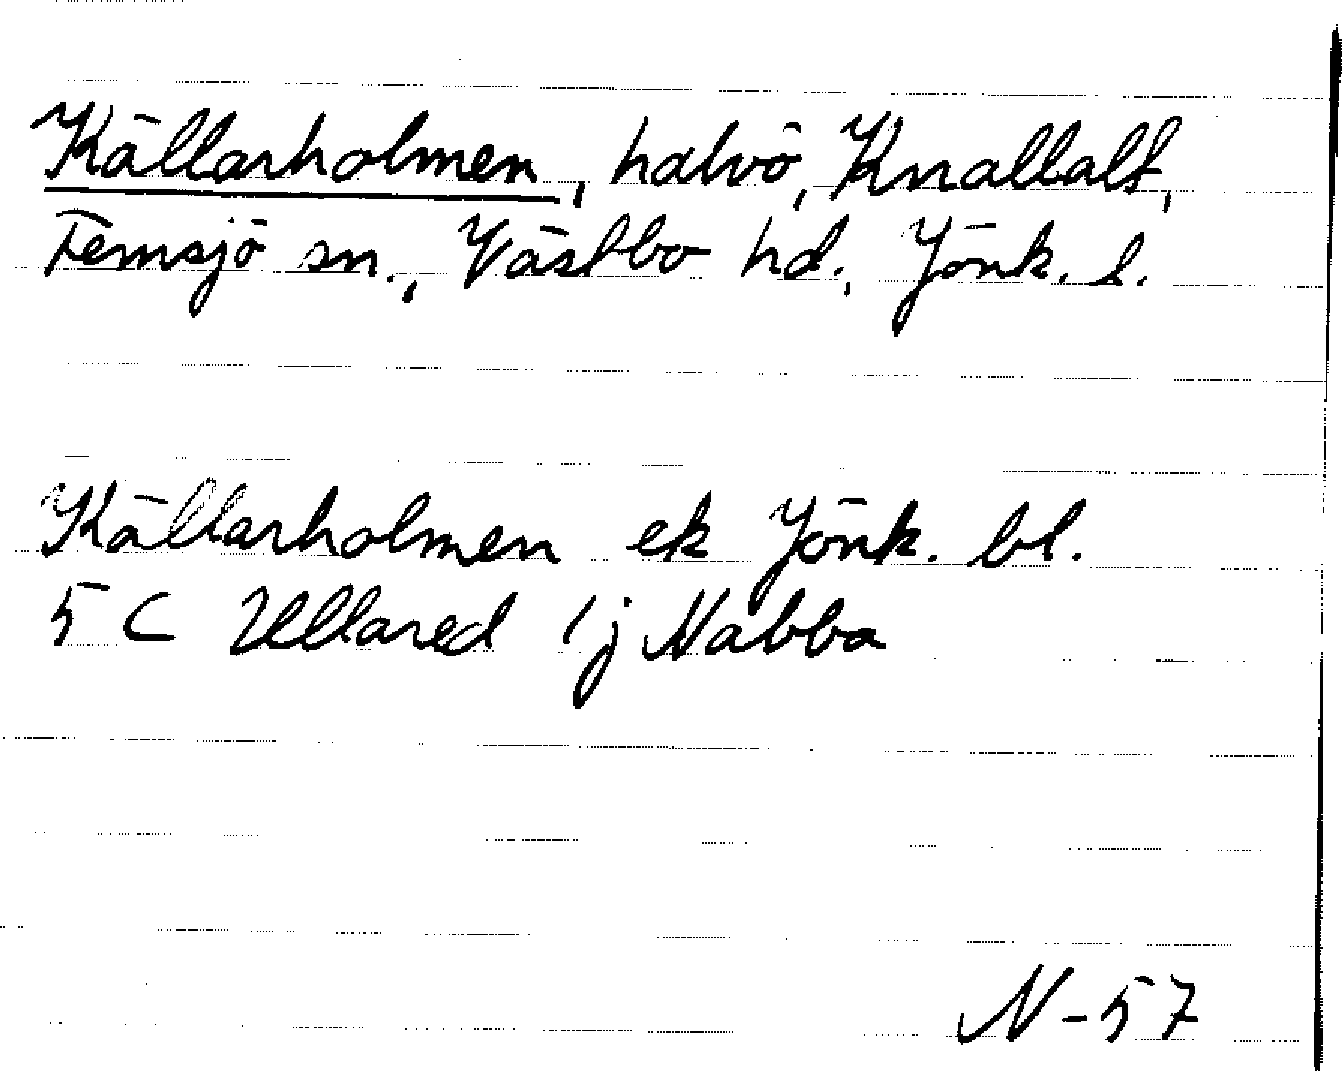 Källarholmen, halvö, Knallalt,
Femsjö sn., Västbo hd., Jönk. l.
Källarholmen ek Jönk. bl.
5 C Ullared 1j Nabba
N-57